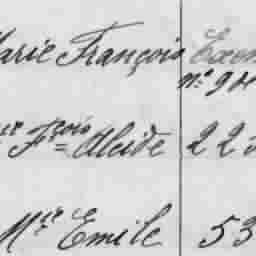 Marie François Exem
n.º 94
F.çois = Alcide 22
M.ie Emile 53